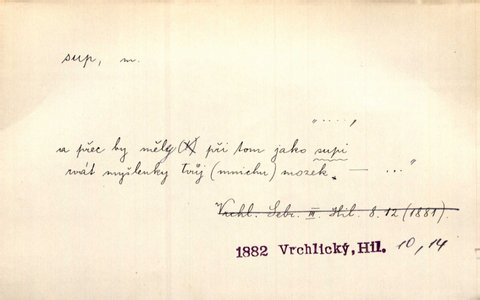 sup, m.
„....,
a přec by měly (X) při tom jako supi
rvát myšlenky tvůj (mnichu) mozek. — ..."
Vrchl. Sebr. III. Hil. 8. 12 (1881).
1882 Vrchlický, Hil. 10, 14